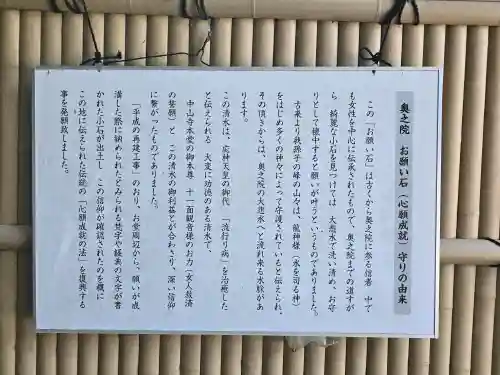 奥之院 お願い石「心願成就」守りの由来
この「お願い石」は古くから奥之院に参る信者 中で
も女性を中心に伝承されたもので、奥之院までの道すが
ら、綺麗な小石を見つけては 大悲水で洗い清め、お守
りとして懐中すると願いが叶うというものでありました。
古来より我孫子の峰の山々は、龍神様(水を司る神)
をはじめ多くの神々によって守護されていると伝えられ、
その頂きからは、奥之院の大悲水へと流れ来る水脈があ
ります。
この清水は、応神天皇の御代 「流行り病」を治癒した
と伝えられる 大変に功徳のある清水で
中山寺本堂の御本尊 十一面観音様のお力(女人救済
の誓願)と この清水の御利益とが合わさり、深い信仰
に繋がったものでありました。
「平成の再建工事」のおり、お堂周辺から、願いが成
満した際に納められたとみられる梵字や経典の文字が書
かれた小石が出土し この信仰が確認されたのを機に
この地に伝えられた伝統の「心願成就の法」を復興する
事を発願致しました。